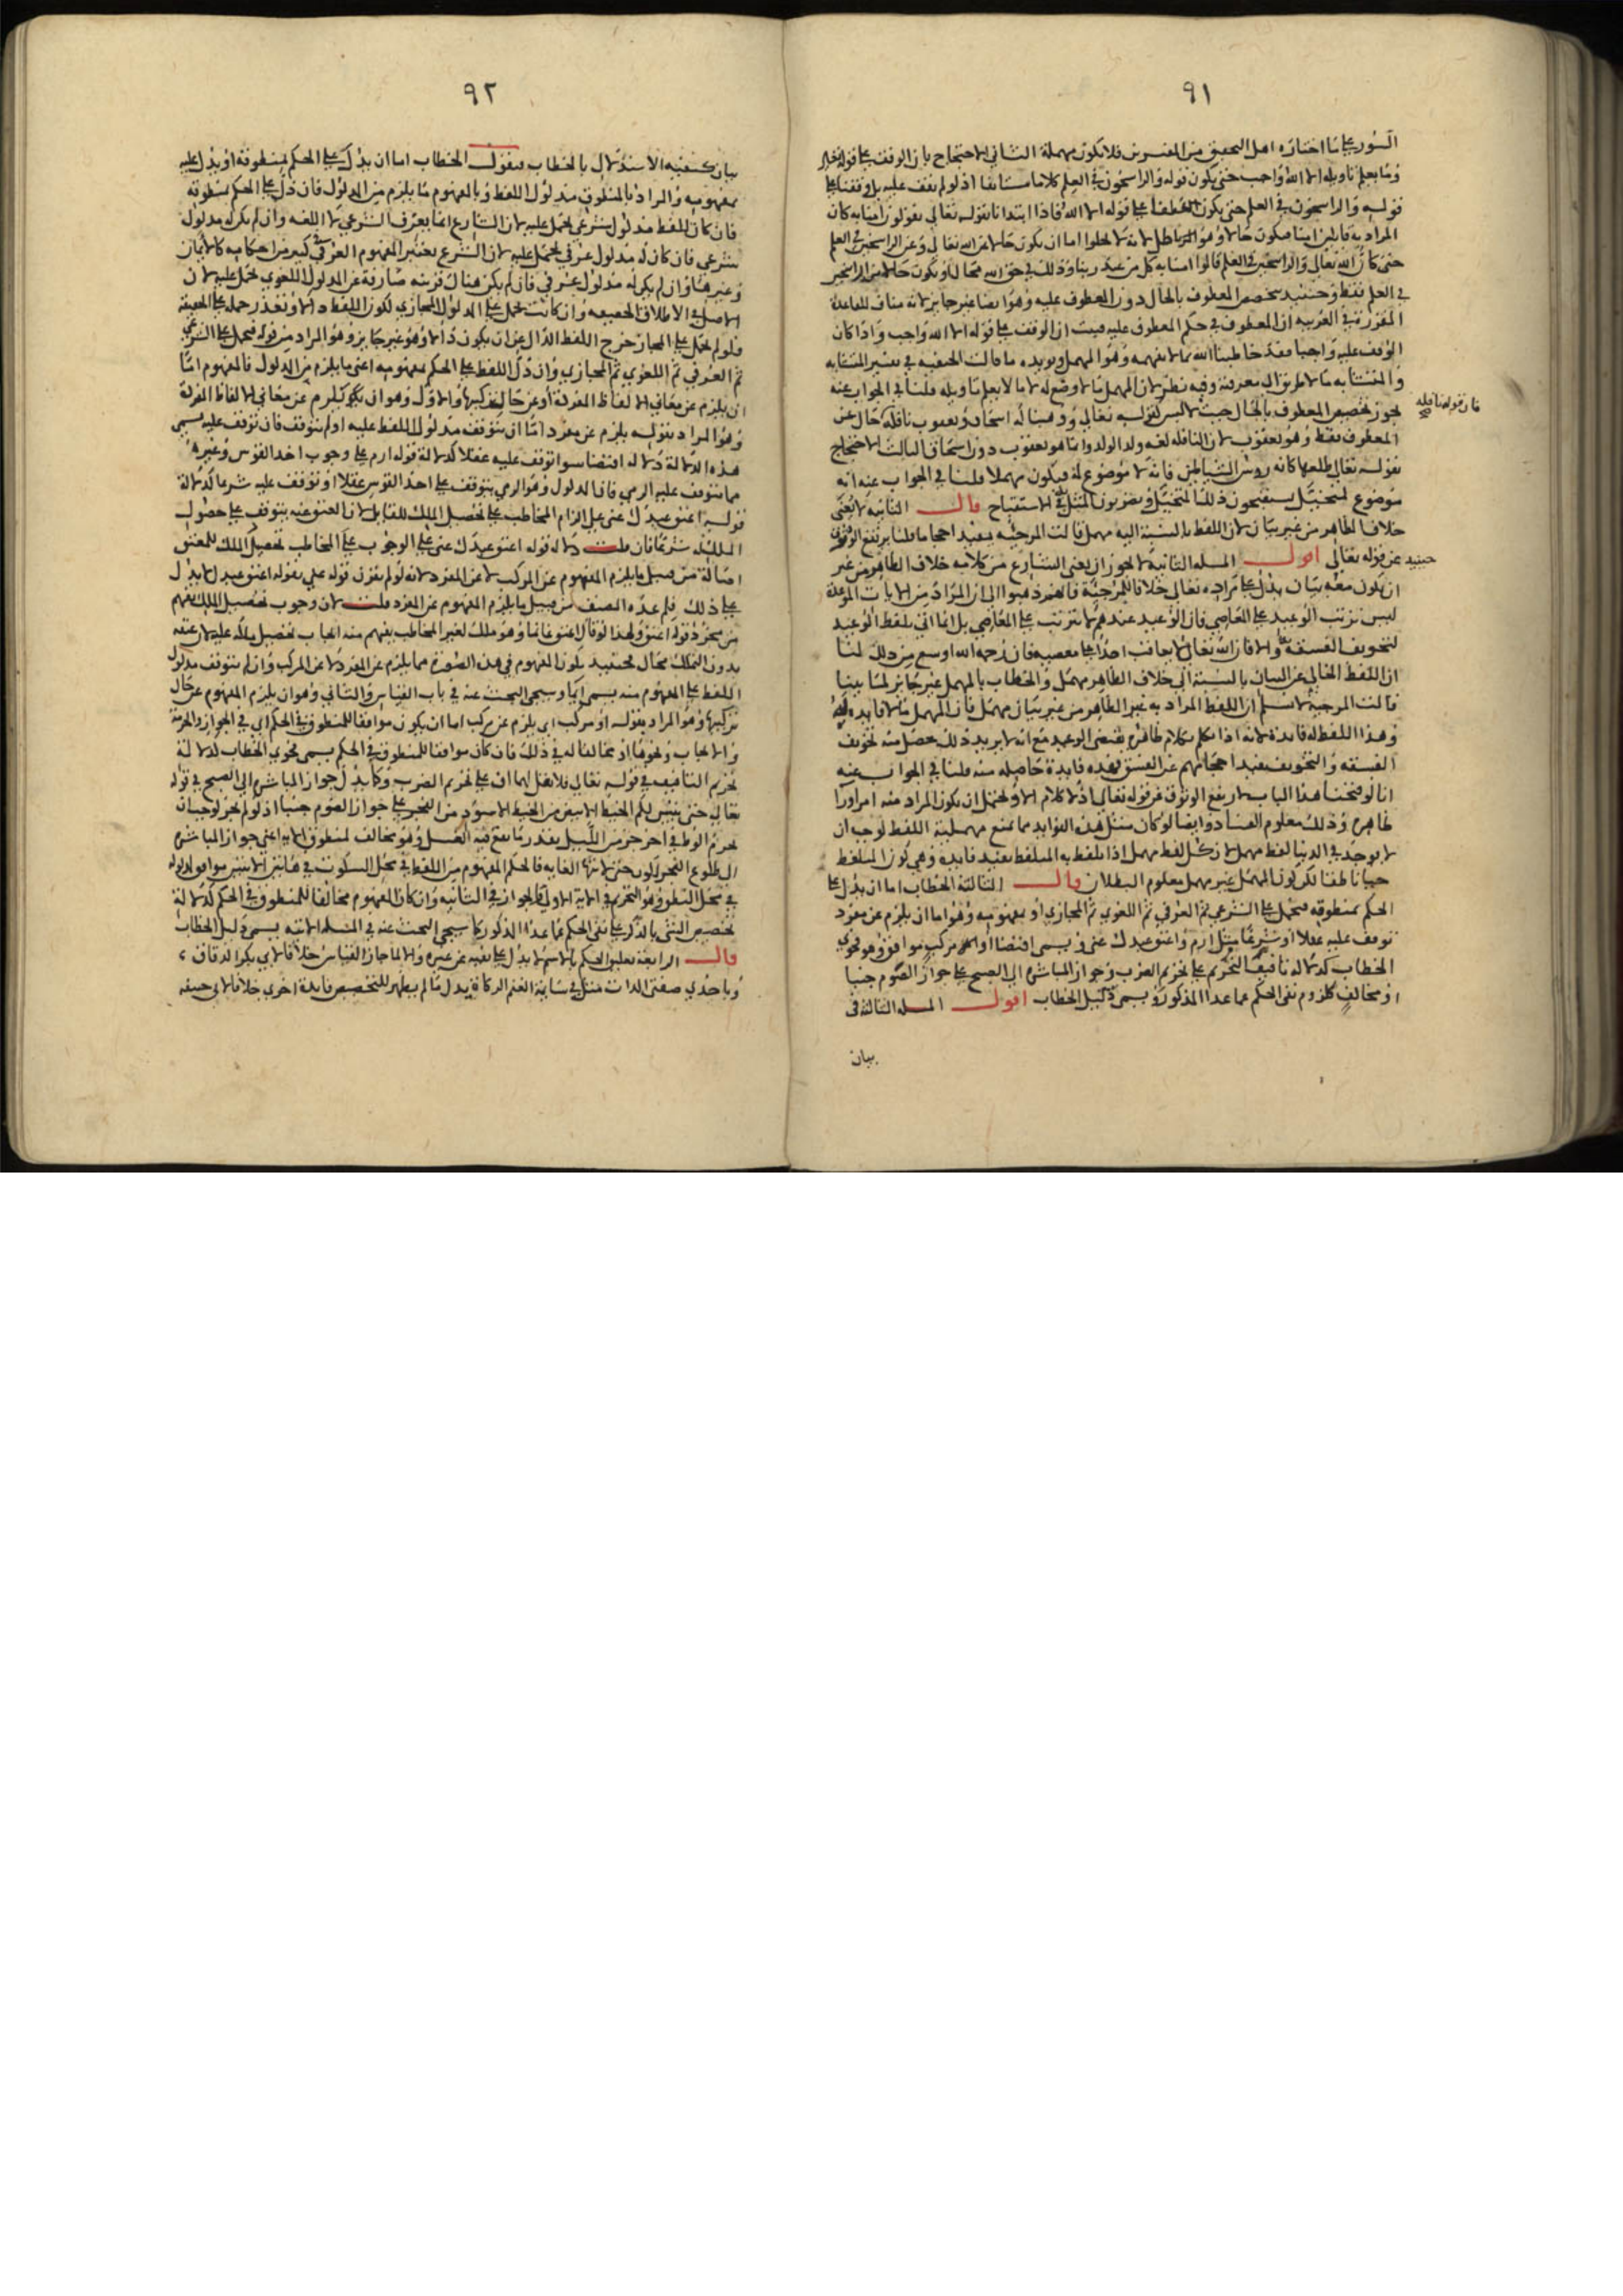 ٩١
السور على ما اختاره اهل التحقيق من المفسرين فلا تكون مهملة الثاني الاحتجاج بان الوقف على قوله تعالى
وما يعلم تاويله الا الله واجب حتى يكون قوله والراسخون في العلم كلاما مستانفا اذ لو لم نقف عليه بل وقفنا على
قوله والراسخون في العلم حتى يكون العطف على قوله الا الله فاذا ابتدانا بقوله تعالى يقولون امنا به كان
المراد به قايلين امنا فيكون حالا وهو باطل لانه لا يخلوا اما ان يكون حالا من الله تعالى وعن الراسخين في العلم
حتى كان الله تعالى والراسخين في العلم قالوا امنا به كل من عند ربنا وذلك في حق الله محال او يكون حالا من الراسخين
في العلم فقط وحينيذ يتخصص المعطوف بالحال دون المعطوف عليه وهو ايضا غير جايز لانه مناف للقاعدة
المقررة في العربيه ان المعطوف في حكم المعطوف عليه فيثبت ان الوقف على قوله الا الله واجب واذا كان
الوقف عليه واجبا فقد خاطبنا الله بما لا نفهمه وهو المهمل ويويده ما قالت الحنفيه في تفسير المتشابه
والمتشابه ما لا طريق الى معرفته وفيه نظر لان المهمل ما لا وضع له لا ما لا يعلم تاويله قلنا في الجواب عنه
يجوز تخصيص المعطوف بالحال حيث لا لبس كقوله تعالى ووهبنا له اسحاق ويعقوب نافلة حال عن
فان قوله نافله صح
المعطوف فقط وهو يعقوب لان النافله لغه ولد الولد وانما هو يعقوب دون اسحاق الثالث الاحتجاج
بقوله تعالى طلعها كانه روس الشياطين فانه لا موضوع له فيكون مهملا قلنا في الجواب عنه انه
موضوع لمتخيل يستقبحون ذلك المتخيل ويضربون المثل في الاستقباح قال الثانيه لا يعنى
خلاف الظاهر من غير بيان لان اللفظ بالنسبة اليه مهمل قالت المرجئه يفيد احجاما قلنا يرتفع الوثوق
حينيذ عن قوله تعالى اقول المسله الثانيه لا يجوز ان يعنى الشارع من كلامه خلاف الظاهر من غير
ان يكون معه بيان يدل على مراده تعالى خلافا للمرجئة فانهم ذهبوا الى ان المراد من الايات الموعدة
ليس ترتب الوعيد على المعاصي فان الوعيد عندهم لا يترتب على المعاصي بل انما اتى بلفظ الوعيد
لتخويف الفسقة والا فان الله تعالى لا يعاقب احدا على معصيه فان رحمه الله اوسع من ذلك لنا
ان اللفظ الخالي عن البيان بالنسبة الى خلاف الظاهر مهمل والخطاب بالمهمل غير جايز لما بينا
قالت المرجية لا نسلم ان اللفظ المراد به غير الظاهر من غير بيان مهمل فان المهمل ما لا فايده فيه
وهذا اللفظ له فايدة لانه اذا تكلم بكلام ظاهره يقتضى الوعيد مع انه لا يريد ذلك حصل منه تخويف
الفسقه والتخويف يفيد احجامهم عن الفسق فهذه فايدة حاصله منه قلنا في الجواب عنه
انا لو فتحنا هذا الباب لارتفع الوثوق عن قوله تعالى اذ لا كلام الا ويحتمل ان يكون المراد منه امرا ورا
ظاهره وذلك معلوم الفساد وايضا لو كان مثل هذه الفوايد مما تمنع مهمليه اللفظ لوجب ان
لا يوجد في الدنيا لفظ مهمل لان كل لفظ مهمل اذا تلفظ به المتلفظ يفيد فايدة وهي كون المتلفظ
حيا ناطقا لكن كون المهمل غير مهمل معلوم البطلان قال الثالثة الخطاب اما ان يدل على
الحكم بمنطوقه فيحمل على الشرعي ثم العرفي ثم اللغوي ثم المجازي او بمفهومه وهو اما ان يلزم عن مفرد
توقف عليه عقلا او شرعا مثل ارم واعتق عبدك عني ويسمى اقتضا او مركب موافق وهو فحوى
الخطاب كدلاله تافيف التحريم على تحريم الضرب وجواز المباشره الى الصبح على جواز الصوم جنبا
او مخالف كلزوم نفى الحكم عما عدا المذكور ويسمى دليل الخطاب اقول المسله الثالثة في
بيان
٩٢
بيان كيفيه الاستدلال بالخطاب فنقول الخطاب اما ان يدل على الحكم بمنطوقه او يدل عليه
بمفهومه والمراد بالمنطوق مدلول اللفظ وبالمفهوم ما يلزم من المدلول فان دل على الحكم بمنطوقه
فان كان للفظ مدلول شرعي يحمل عليه لان الشارع انما يعرف الشرعي لا اللغه وان لم يكن له مدلول
شرعي فان كان له مدلول عرفي يحمل عليه لان الشرع يعتبر المفهوم العرفي في كثير من احكامه كالايمان
وغيرها وان لم يكن له مدلول عرفي فان لم يكن هناك قرينه صارفة عن المدلول اللغوي حمل عليه لان
الاصل في الاطلاق الحقيقه وان كانت يحمل على المدلول المجازي لكون اللفظ دالا وتعذر حمله على الحقيقة
فلو لم يحمل على المجاز خرج اللفظ الدال عن ان يكون دالا وهو غير جايز وهو المراد من قوله فيحمل على الشرعي
ثم العرفي ثم اللغوي ثم المجازي وان دل اللفظ على الحكم بمفهومه اعنى ما يلزم من المدلول فالمفهوم اما
ان يلزم عن معاني الالفاظ المفردة او عن حال تركيبها والاول وهو ان يكون يلزم عن معاني الالفاظ المفردة
وهو المراد بقوله يلزم عن مفرد اما ان يتوقف مدلول اللفظ عليه او لم يتوقف فان توقف عليه يسمى
هذه الدلالة دلاله اقتضا سوا توقف عليه عقلا كدلالة قوله ارم على وجوب اخذ القوس وغيره
مما يتوقف عليه الرمي فان المدلول وهو الرمي يتوقف على اخذ القوس عقلا او توقف عليه شرعا كدلالة
قوله اعتق عبدك عني على الزام المخاطب على تحصيل الملك للقايل لان العتق عنه يتوقف على حصول
الملك له شرعا فان قلت دلاله قوله اعتق عبدك عني على الوجوب على المخاطب تحصيل الملك للمعتق
اصالة من قبيل ما يلزم المفهوم عن المركب لا عن المفرد لانه لو لم يقرن قوله عني بقوله اعتق عبدك لا يدل
على ذلك فلم عده المصنف من قبيل ما يلزم المفهوم عن المفرد قلت لان وجوب تحصيل الملك يفهم
من مجرد قوله اعتق ولهذا لو قال اعتق غانما وهو ملك لغير المخاطب يفهم منه ايجاب تحصيل ملكه عليه لان عتقه
بدون التملك محال فحينيذ يكون المفهوم في هذه الصورة مما يلزم عن المفرد لا عن المركب وان لم يتوقف مدلول
اللفظ على المفهوم منه يسمى ايما وسيجى البحث عنه في باب القياس والثاني وهو ان يلزم المفهوم عن حال
تركيبها وهو المراد بقوله او مركب اى يلزم عن مركب اما ان يكون موافقا للمنطوق في الحكم اي في الجواز والحرمة
والايجاب ونحوها او مخالفا له في ذلك فان كان موافقا للمنطوق في الحكم يسمى فحوى الخطاب كدلالة
تحريم التافيف في قوله تعالى فلا تقل لهما اف على تحريم الضرب وكما يدل جواز المباشره الى الصبح في قوله
تعالى حتى يتبين لكم الخيط الابيض من الخيط الاسود من الفجر على جواز الصوم جنبا اذ لو لم يجز لوجب ان
يحرم الوطى في اخر جزء من الليل بقدر ما يقع فيه الغسل وهو مخالف لمنطوق الايه اعنى جواز المباشره
الى طلوع الفجر لكون حتى لانتها الغايه فالحكم المفهوم من اللفظ في محل السكوت في هاتين الايتين موافق لمدلوله
في محل النطق وهو التحريم في الاية الاولى والجواز في الثانيه وان كان المفهوم مخالفا للمنطوق في الحكم كدلالة
تخصيص الشى بالذكر على نفى الحكم عما عدا المذكور كما سيجى البحث عنه في المسله الاتيه يسمى دليل الخطاب
قال الرابعة تعليق الحكم بالاسم لا يدل على نفيه عن غيره والا لما جاز القياس خلافا لابي بكر الدقاق
وباحدى صفتى الذات مثل في سايمة الغنم الزكاة يدل ما لم يظهر للتخصيص فايدة اخرى خلافا لابى حنيفه